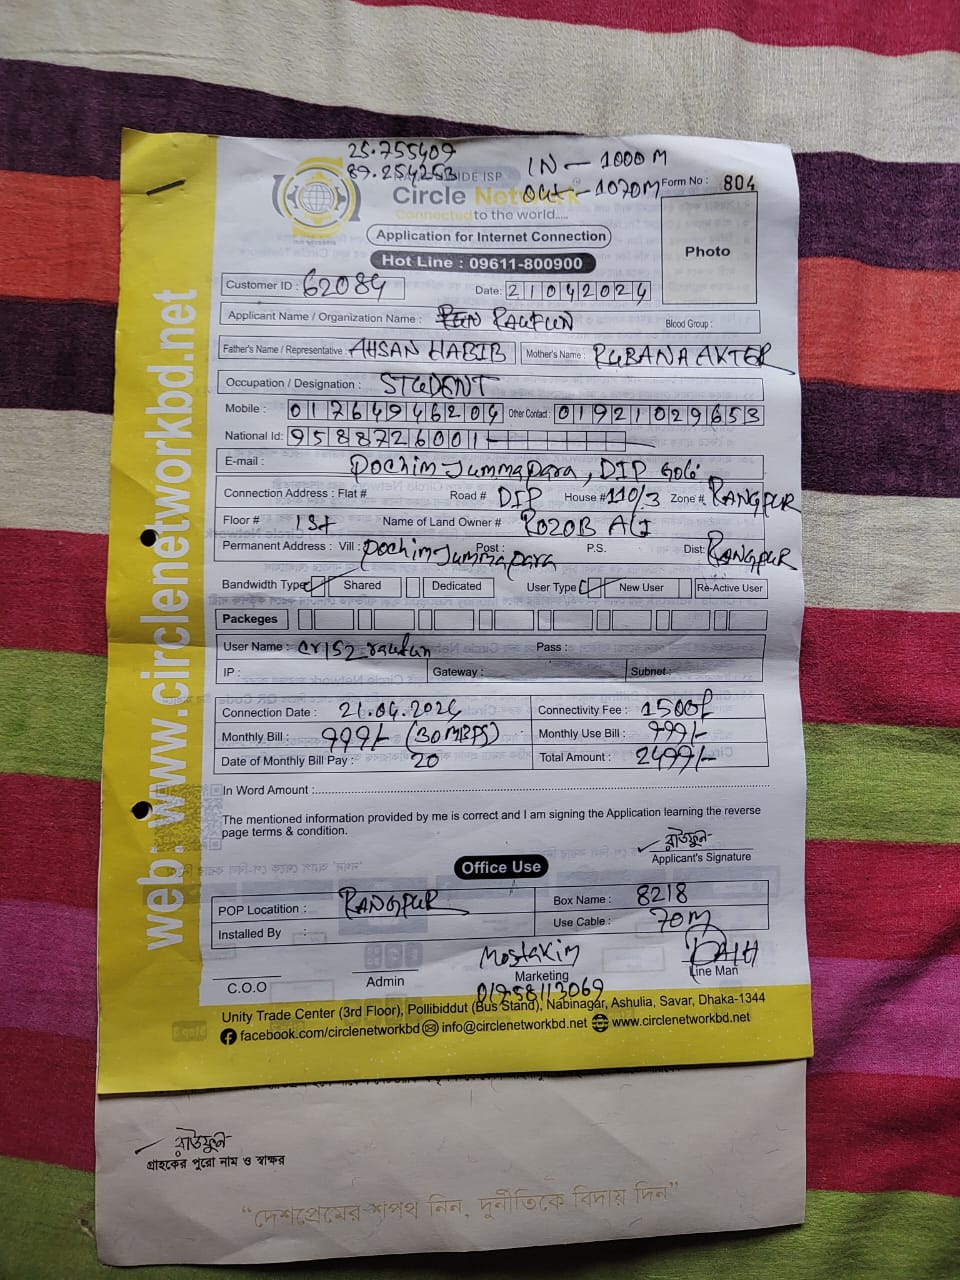 25.755409
89.254253
IN - 1000 M
Out - 1070M
Form No : 804
IDE ISP
Circle Network
Connected to the world.....
Photo
Application for Internet Connection
Hot Line : 09611-800900
Customer ID : 62084
Date: 21042024
Applicant Name / Organization Name : RAUFUN
Blood Group :
Father's Name / Representative : AHSAN HABIB
Mother's Name : RUBANA AKTER
Occupation / Designation : STUDENT
Mobile : 01764946204
Other Contact : 01921029653
National Id: 9588726001
E-mail : Pochim Jummapara, DIP
Connection Address : Flat # Road # DIP House # 110/3 Zone # RANGPUR
Floor # 1st Name of Land Owner # ROZOB ALI
Permanent Address : Vill : Pochim Jummapara Post : P.S. Dist: RANGPUR
Bandwidth Type Shared Dedicated User Type New User Re-Active User
Packeges
User Name : cr152 raufun Pass :
IP : Gateway : Subnet :
Connection Date : 21.04.2024 Connectivity Fee : 1500/-
Monthly Bill : 999/- (30 MBPS) Monthly Use Bill : 999/-
Date of Monthly Bill Pay : 20 Total Amount : 2499/-
In Word Amount :
The mentioned information provided by me is correct and I am signing the Application learning the reverse
page terms & condition.
রাউফুন
Applicant's Signature
Office Use
POP Locatition : RANGPUR Box Name : 8218
Installed By : Use Cable : 70M
Mostakim
C.O.O Admin Marketing Line Man
01758113069
Unity Trade Center (3rd Floor), Pollibiddut (Bus Stand), Nabinagar, Ashulia, Savar, Dhaka-1344
facebook.com/circlenetworkbd info@circlenetworkbd.net www.circlenetworkbd.net
web: www.circlenetworkbd.net
রাউফুন
গ্রাহকের পুরো নাম ও স্বাক্ষর
“দেশপ্রেমের শপথ নিন, দুর্নীতিকে বিদায় দিন”